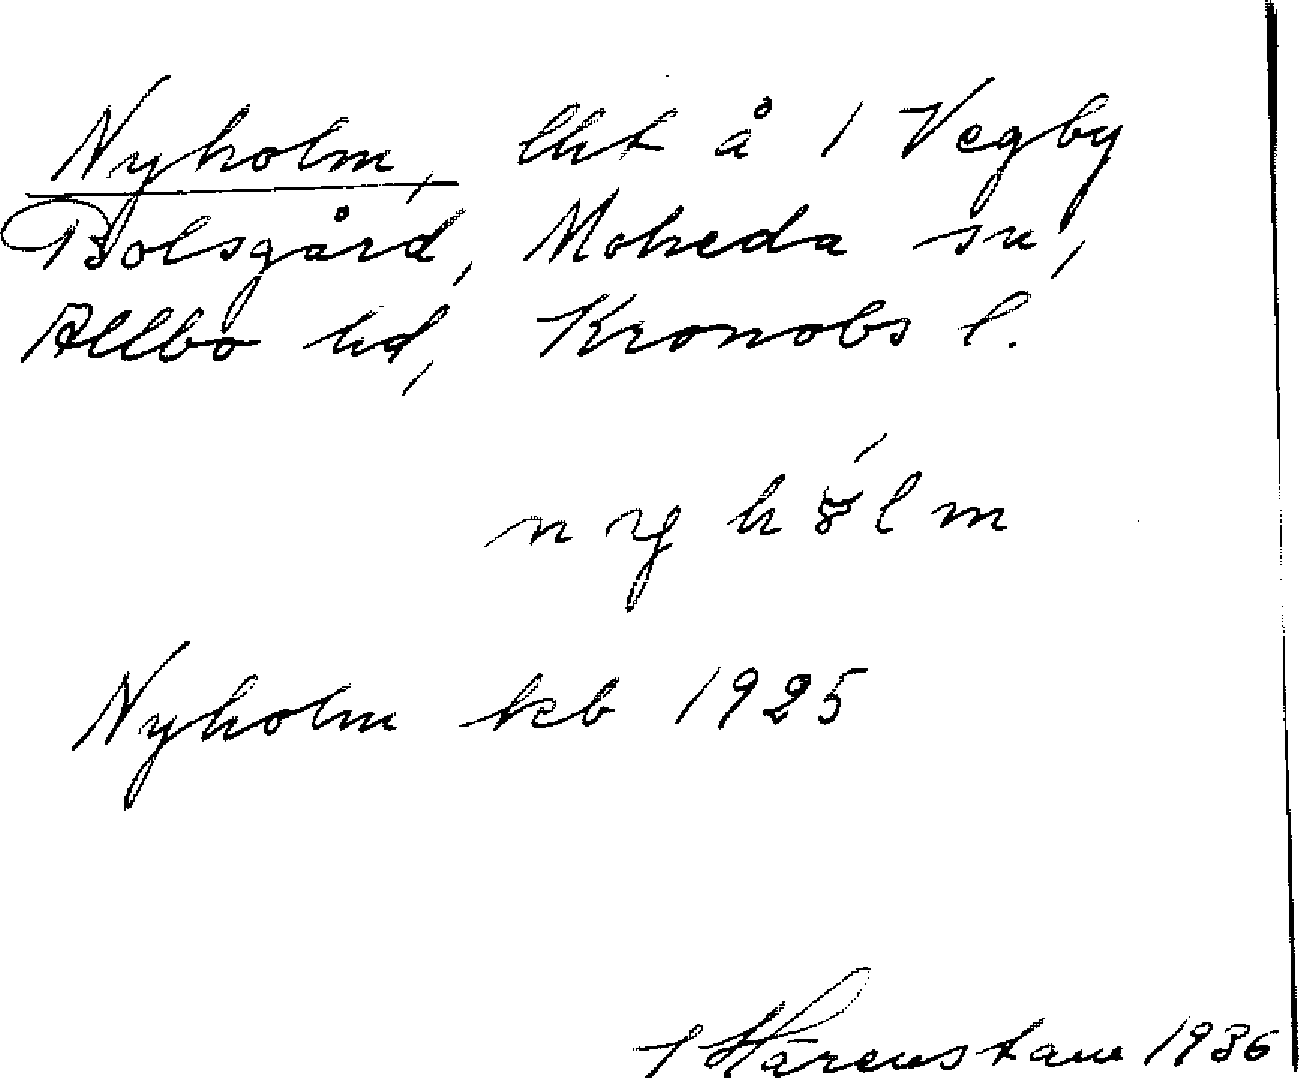 Nyholm, lht å 1 Vegby
Bolsgård, Moheda sn,
Allbo hd, Kronobs l.
n y h ó l m
Nyholm kb 1925
1936